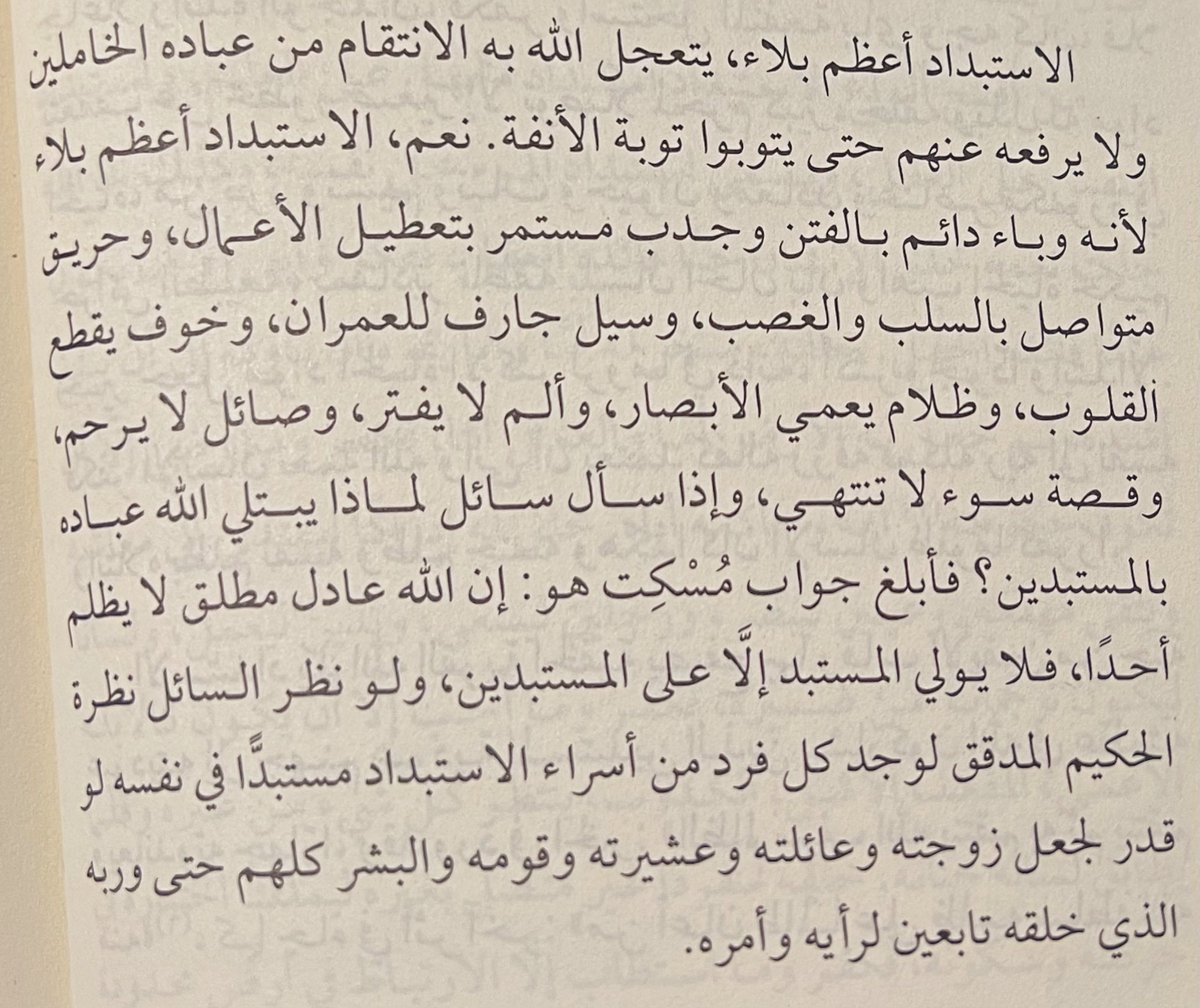 الاستبداد أعظم بلاء، يتعجل الله به الانتقام من عباده الخاملين
ولا يرفعه عنهم حتى يتوبوا توبة الأنفة. نعم، الاستبداد أعظم بلاء
لأنه وباء دائم بالفتن وجدب مستمر بتعطيل الأعمال، وحريق
متواصل بالسلب والغصب، وسيل جارف للعمران، وخوف يقطع
القلوب، وظلام يعمي الأبصار، وألم لا يفتر، وصائل لا يرحم،
وقصة سوء لا تنتهي، وإذا سأل سائل لماذا يبتلي الله عباده
بالمستبدين؟ فأبلغ جواب مُسْكِت هو: إن الله عادل مطلق لا يظلم
أحدًا، فلا يولي المستبد إلَّا على المستبدين، ولو نظر السائل نظرة
الحكيم المدقق لوجد كل فرد من أسراء الاستبداد مستبدًّا في نفسه لو
قدر لجعل زوجته وعائلته وعشيرته وقومه والبشر كلهم حتى وربه
الذي خلقه تابعين لرأيه وأمره.